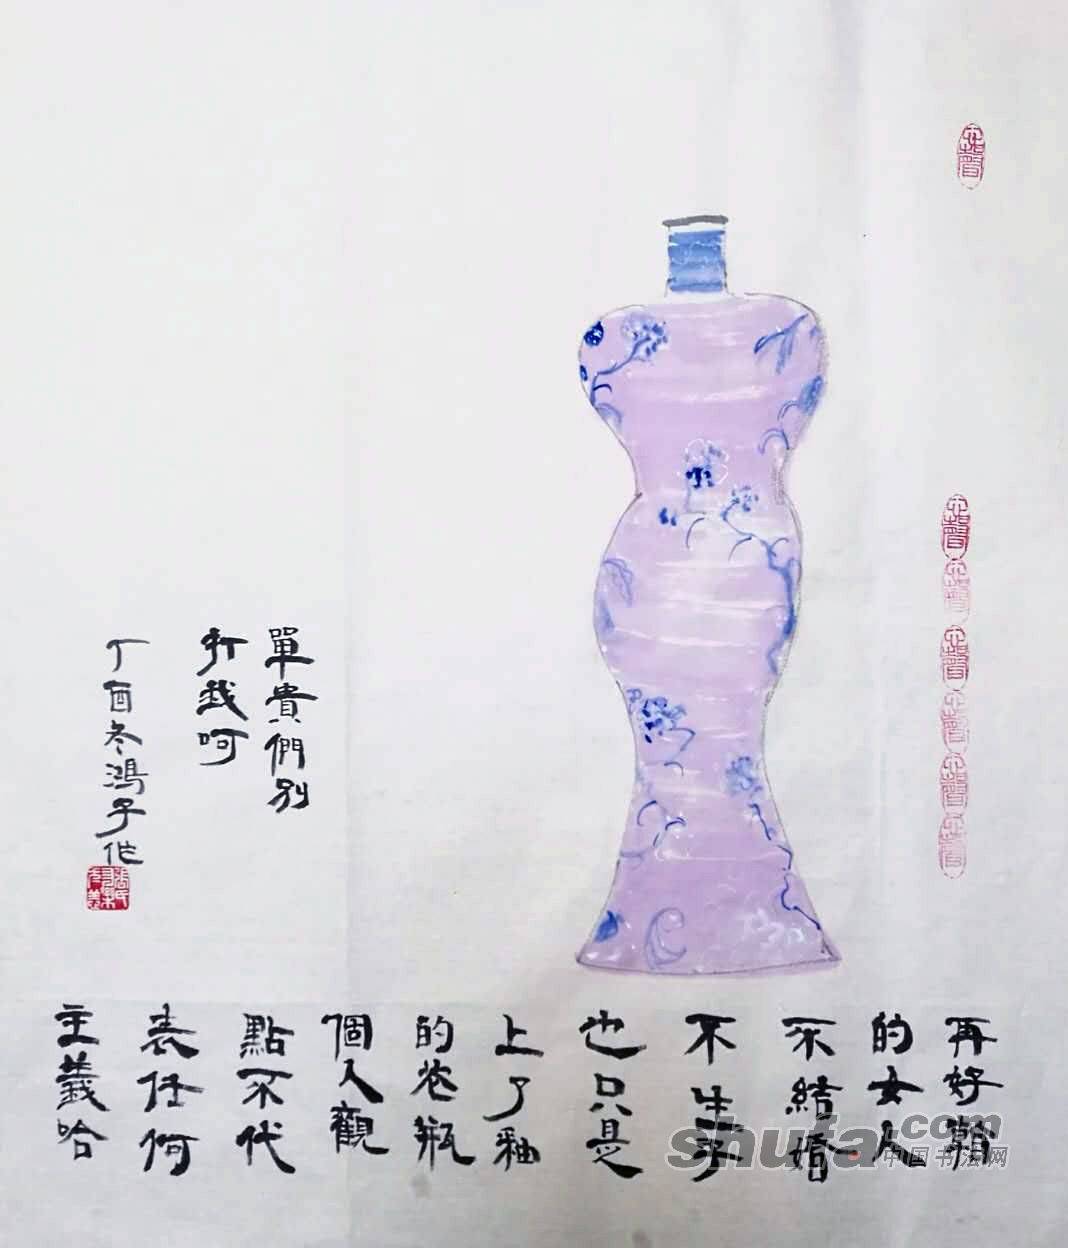 再好
的女人
不結婚
不生子
也只是
上了釉
的花瓶
個人觀
點不代
表任何
主義哈
單貴們別
打我呵
丁酉冬鴻子作
shufa.com
中国书法网